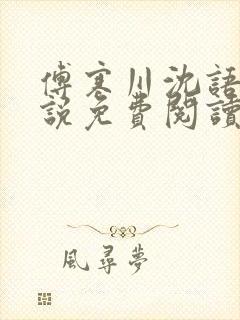 傅寒川沈語
說免費閱讀
風尋夢